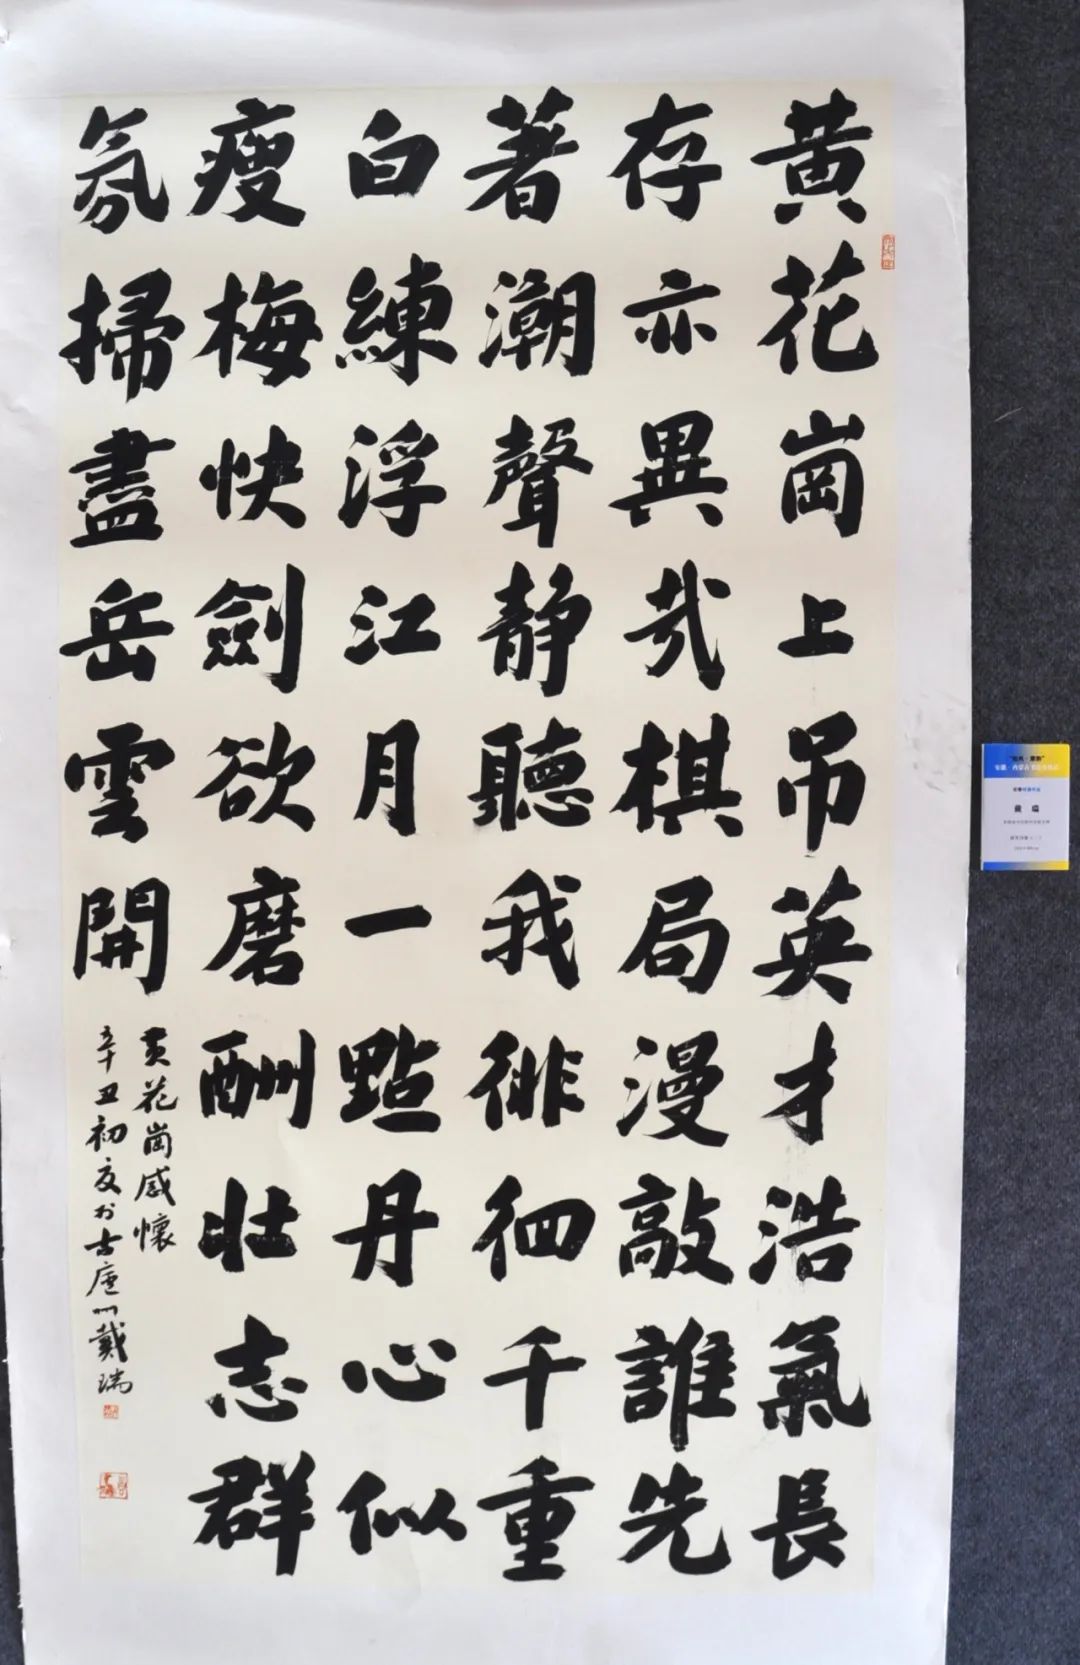 黃花崗上吊英才浩氣長
存亦異哉棋局漫敲誰先
著潮聲靜聽我徘徊千重
白練浮江月一點丹心似
瘦梅快劍欲磨酬壯志群
氛掃盡岳雲開
黃花崗感懷
辛丑初夏於古廬州戴瑞
戴瑞